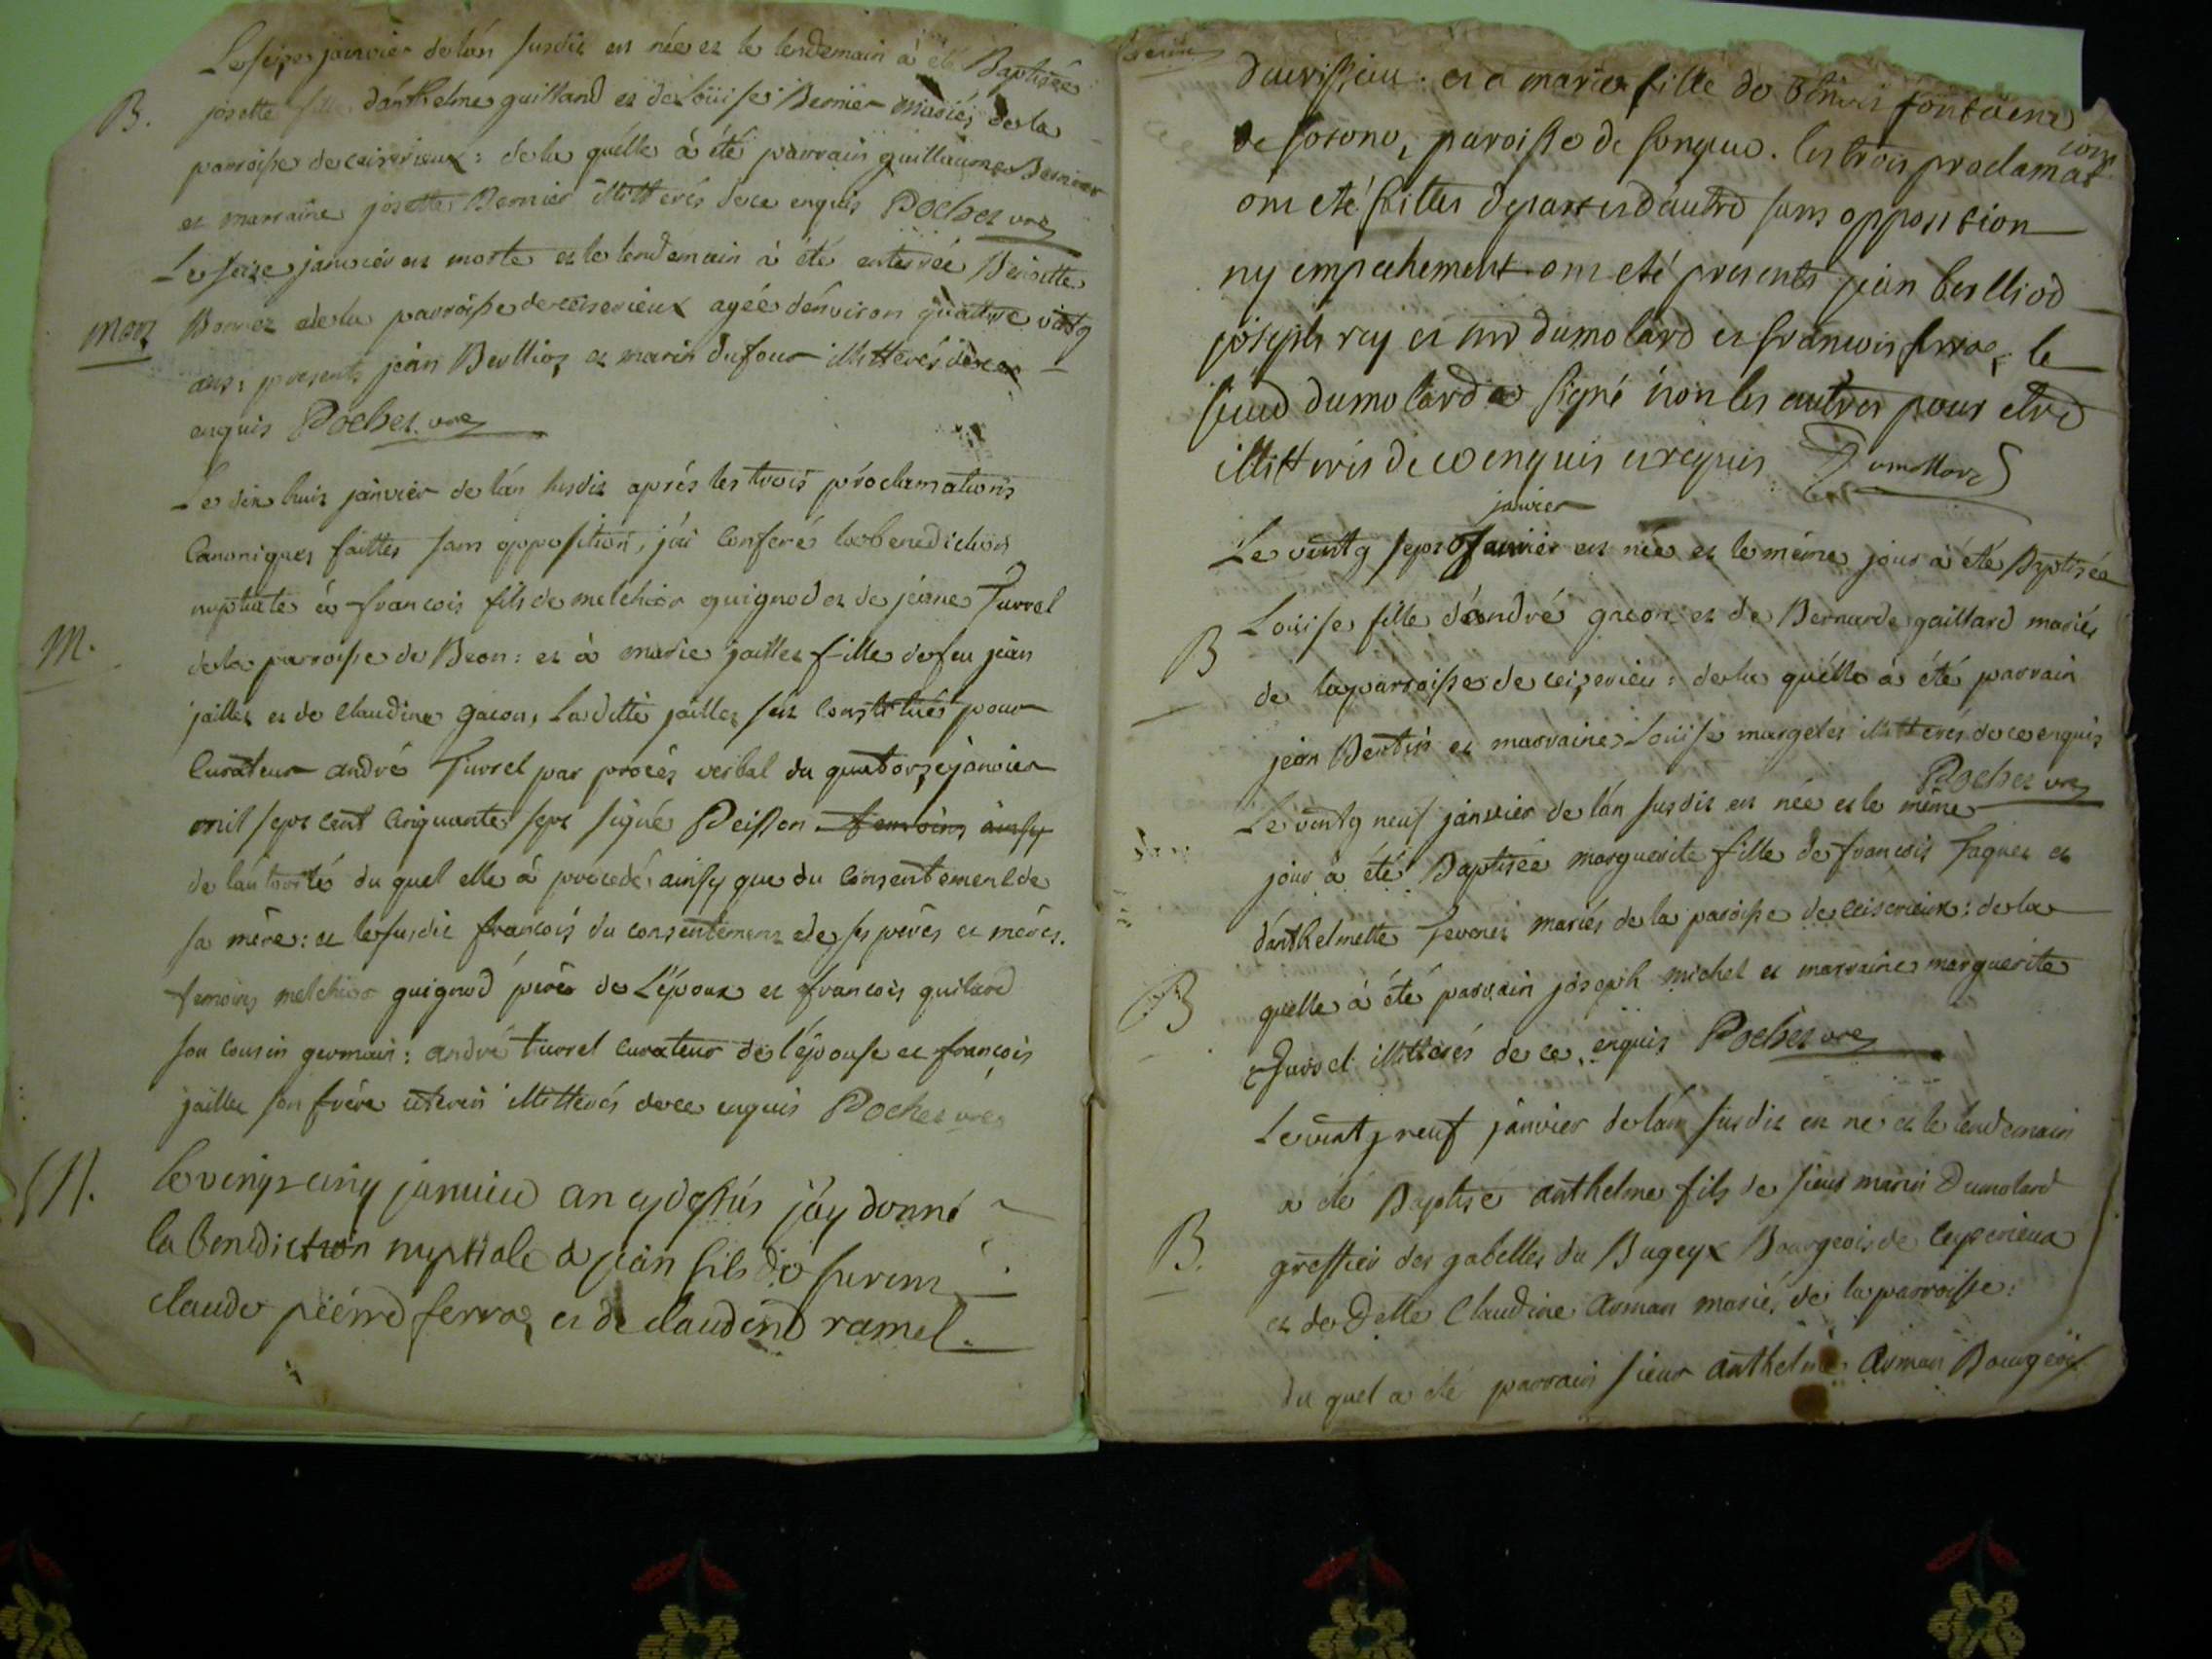 Le seize janvier de lán susdit est née et le lendemain à été Baptisée
B. josette fille dánthelme guilland et de loüise Bernier mariés de la
parroisse de ceiserieux : de la quélle à été parrain guillaume Bernier
et marraine josette Bernier illitterés de ce enquis Pochet vre
Le seize janvier est morte et le lendemain à été enterrée Benoitte
mort Bonnet de la parroisse de ceiserieux agée dénviron quattre vintg
ans : presents jean Berllioz et marin dufour illitterés de ce
enquis Pochet vre
Le dix huit janvier de lán susdit aprés les trois proclamations
Canoniques faittes sans opposition, j'ai Conferé la benediction
nuptiale à francois fils de melchior guignod et de jeanne Turrel
M. de la parroisse de Beon : et à marie jaillet fille de feu jean
jaillet et de Claudine gacon, Laditte jaillet s'est Constitués pour
Curateur andré Turrel par procés verbal du quatorze janvier
mil sept cent Cinquante sept signé Peisson temoins ainsy
de láutorité du quel elle à procedé, ainsy que du Consentement de
sa mère : et le susdit francois du consentement de ses péres et méres.
temoins melchior guignod père de l'époux et francois guilard
son cousin germain : andré turrel curateur de l'épouse et francois
jaillet son frère uterin illitterés de ce enquis Pochet vre
M. le vingt cinq janvier an cydessus jáy donné
la benediction nuptiale a jean fils de
claude piérre ferra et de claudine ramel.
et a marie fille de fontaine
paroisse de songieu. les trois proclamations
ont eté faittes depart et dáutre sans opposition
ny empechement ont eté presents jean berlliod
joseph rey et dumolard et francois ferra, le
sieur dumolard a signé non les autres pour etre
illitteris de ce enquis et requis Dumollard
janvier
Le vintg sept janvier est née et le méme jour à été Baptisée
B Loüise fille d'andré gacon et de Bernarde gaillard mariés
de la parroisse de ceizerieu : de la quélle à été parrain
jean Bertin et marraine Loüise marget illitterés de ce enquis
Pochet vre
Le vintg neuf janvier de lán susdit est née et le méme
jour à été Baptisée marguerite fille de francois Taguet et
dánthelmette Tevenet mariés de la paroisse de ceiserieux : de la
B quelle à été parrain joseph michel et marraine marguerite
Tursel illitterés de ce enquis Pochet vre
Le vintg neuf janvier de lán susdit est né et le lendemain
a été Baptisé anthelme fils de sieur marin Dumolard
B. greffier des gabelles du Bugeyx Bourgeois de ceyserieux
et de Delle Claudine Arman mariés de la parroisse :
du quel a été parrain sieur anthelme Arman Bourgeois